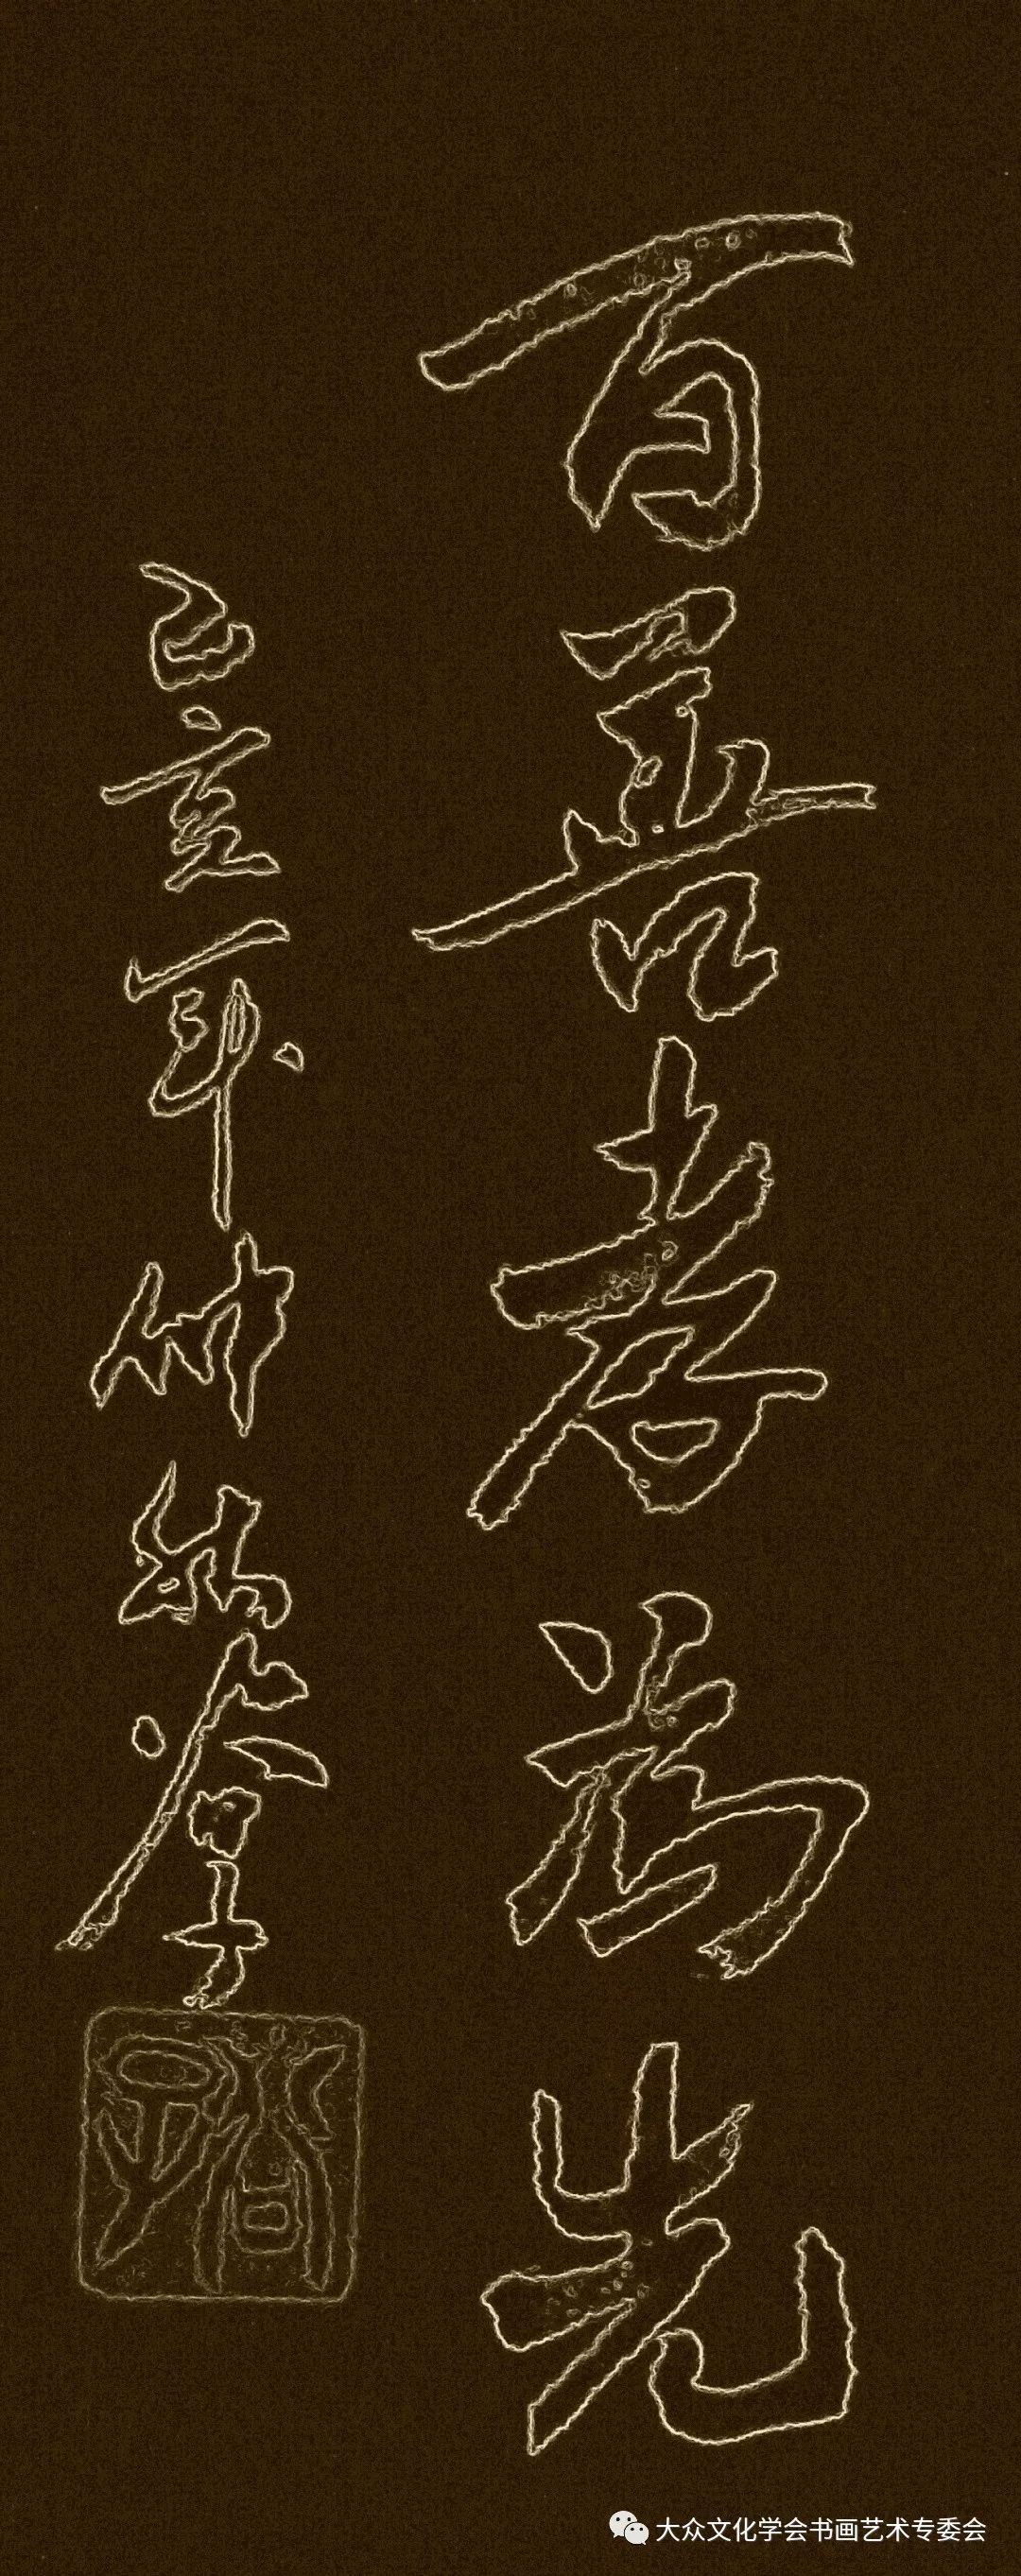 百善孝为先
己亥年仲
大众文化学会书画艺术专委会